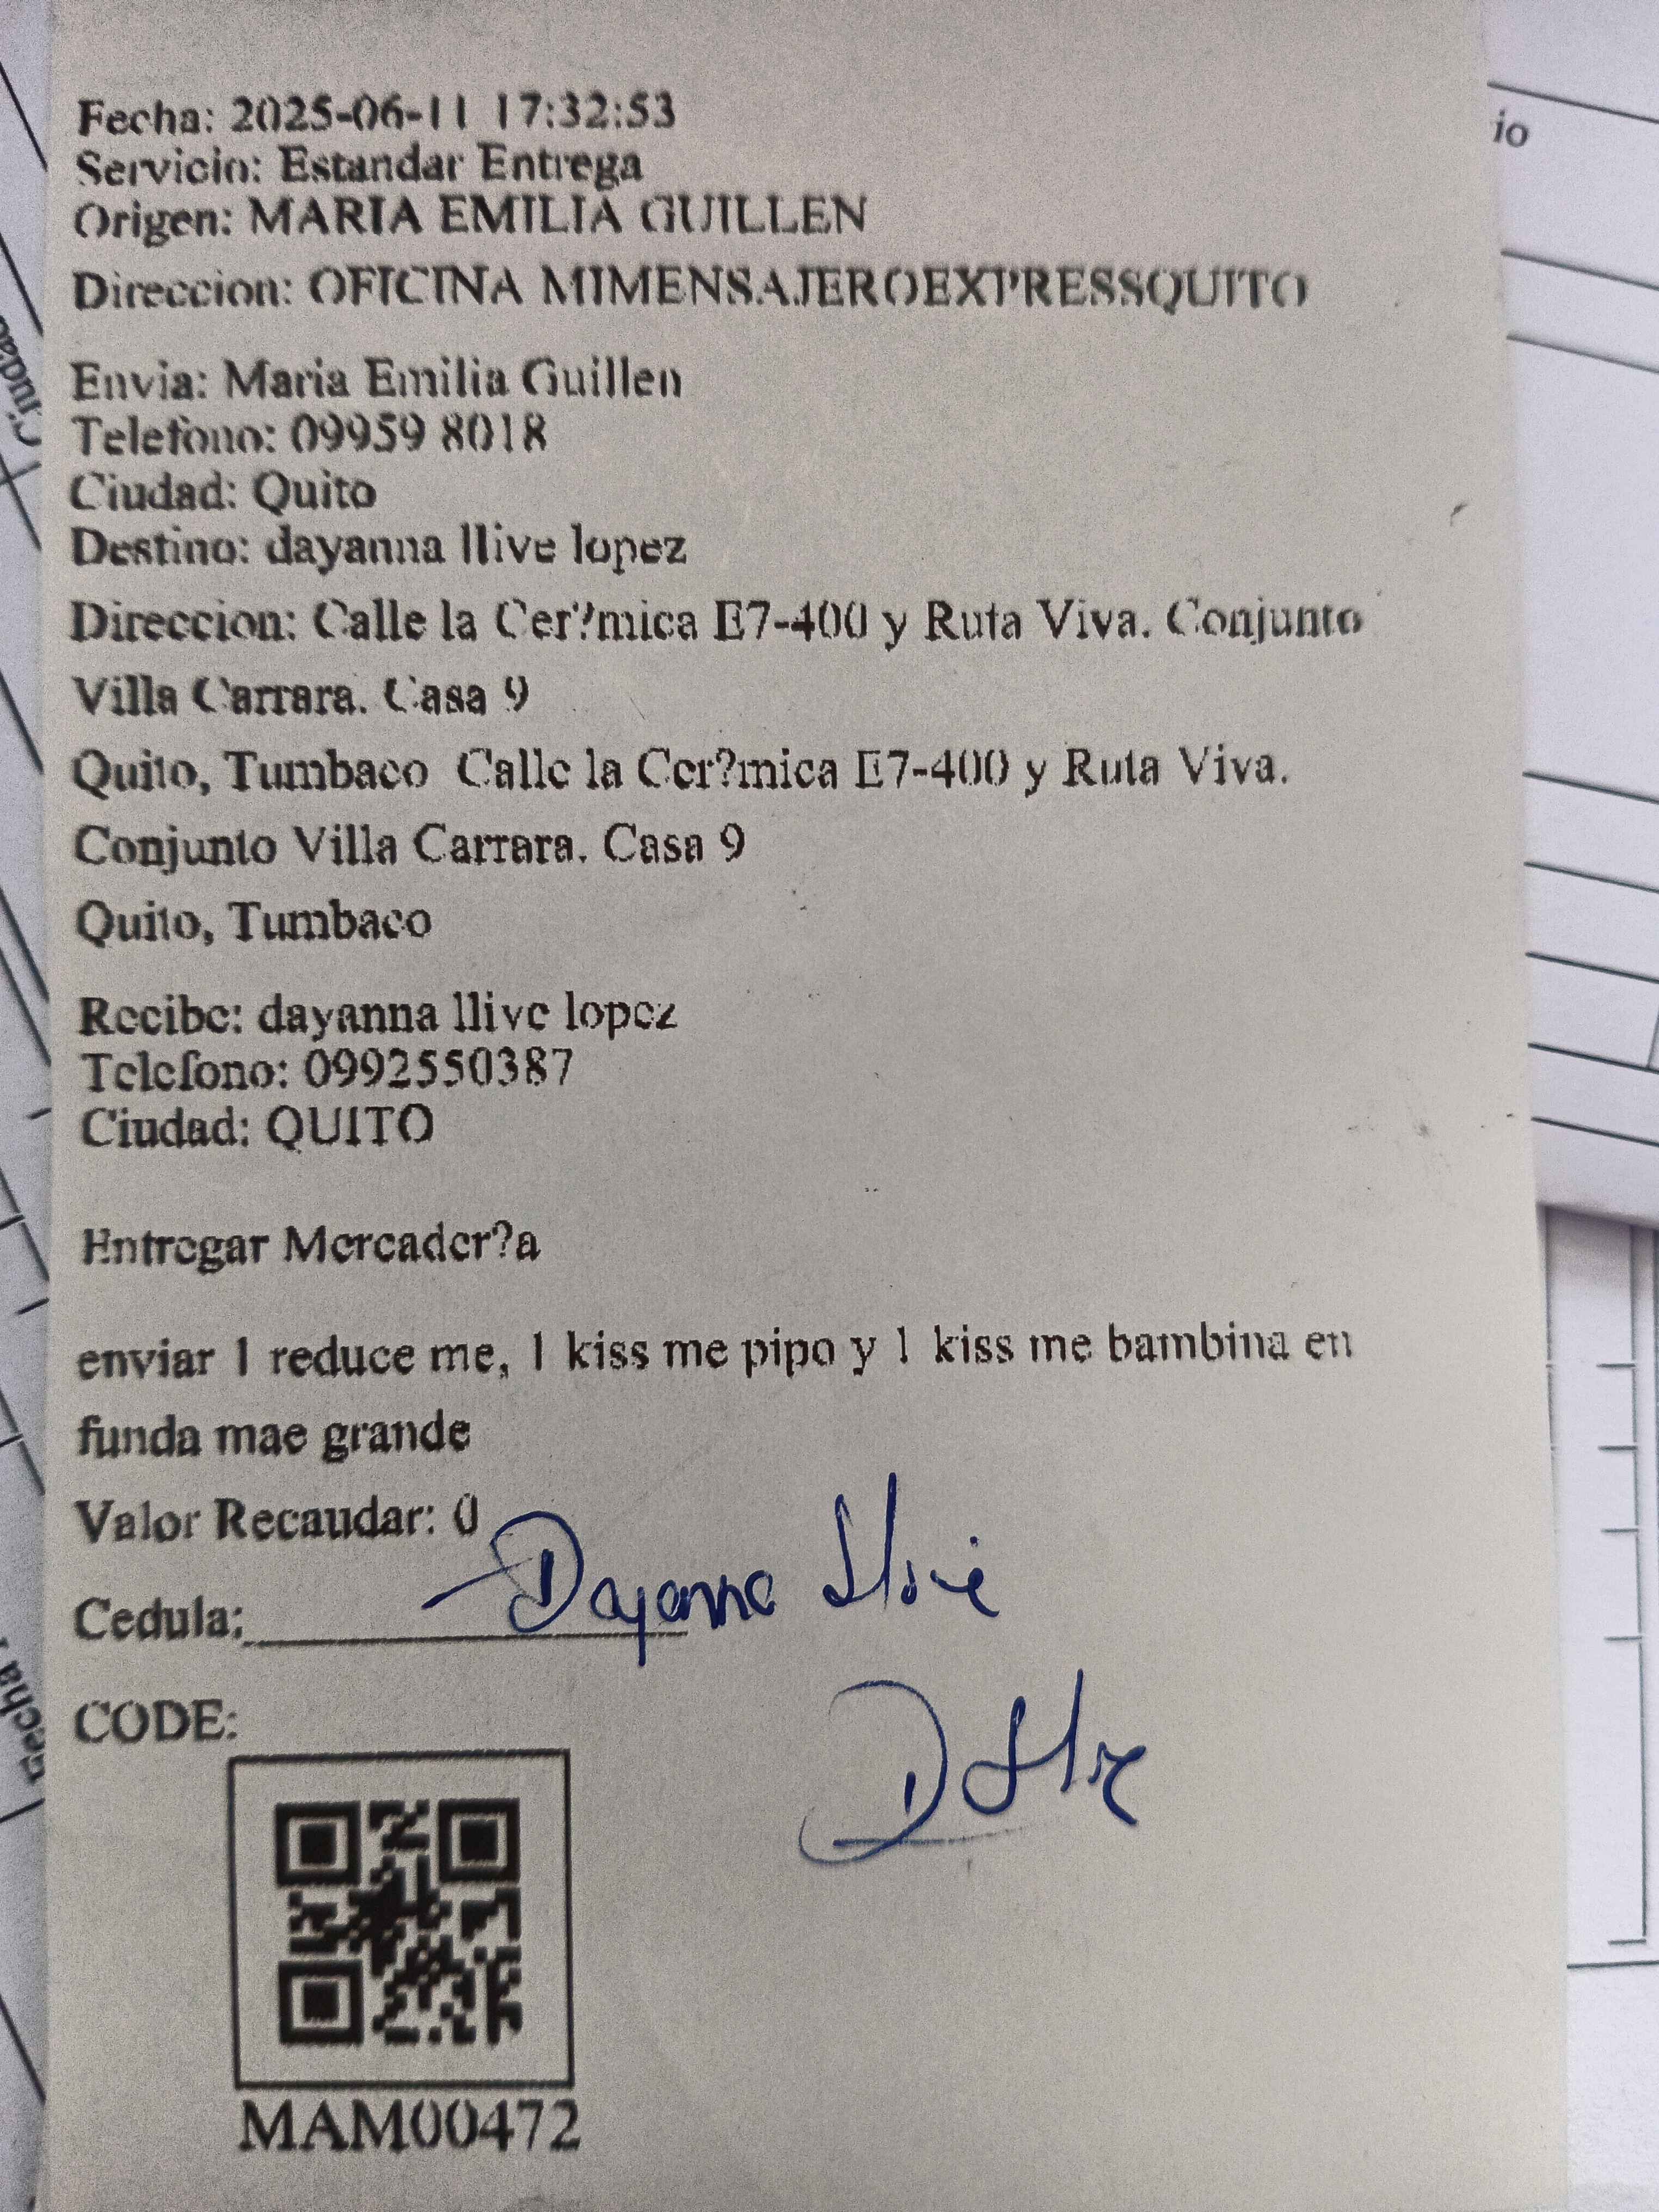 Fecha: 2025-06-11 17:32:53
Servicio: Estandar Entrega
Origen: MARIA EMILIA GUILLEN
Direccion: OFICINA MIMENSAJEROEXPRESSQUITO
Envia: Maria Emilia Guillen
Telefono: 09959 8018
Ciudad: Quito
Destino: dayanna llive lopez
Direccion: Calle la Cer?mica E7-400 y Ruta Viva. Conjunto
Villa Carrara. Casa 9
Quito, Tumbaco Calle la Cer?mica E7-400 y Ruta Viva.
Conjunto Villa Carrara. Casa 9
Quito, Tumbaco
Recibe: dayanna llive lopez
Telefono: 0992550387
Ciudad: QUITO
Entregar Mercader?a
enviar 1 reduce me, 1 kiss me pipo y 1 kiss me bambina en
funda mae grande
Valor Recaudar: 0
Dayanna Llive
Cedula:
CODE:
MAM00472
io
echa